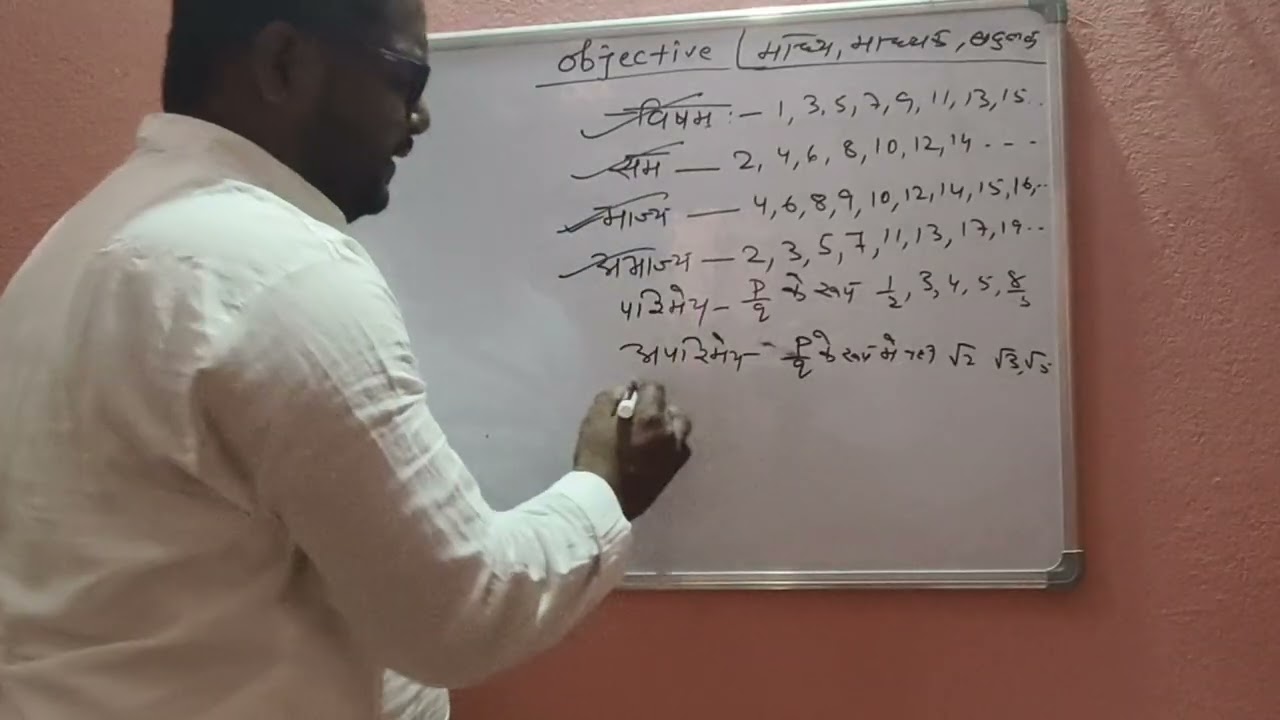 Objective (माध्य, माध्यक, बहुलक
विषम :- 1, 3, 5, 7, 9, 11, 13, 15..
सम — 2, 4, 6, 8, 10, 12, 14 - - -
भाज्य — 4, 6, 8, 9, 10, 12, 14, 15, 16,..
अभाज्य — 2, 3, 5, 7, 11, 13, 17, 19..
परिमेय - p/q के रूप 1/2, 3, 4, 5, 8/3
अपरिमेय - p/q के रूप मे नही √2 √3, √5